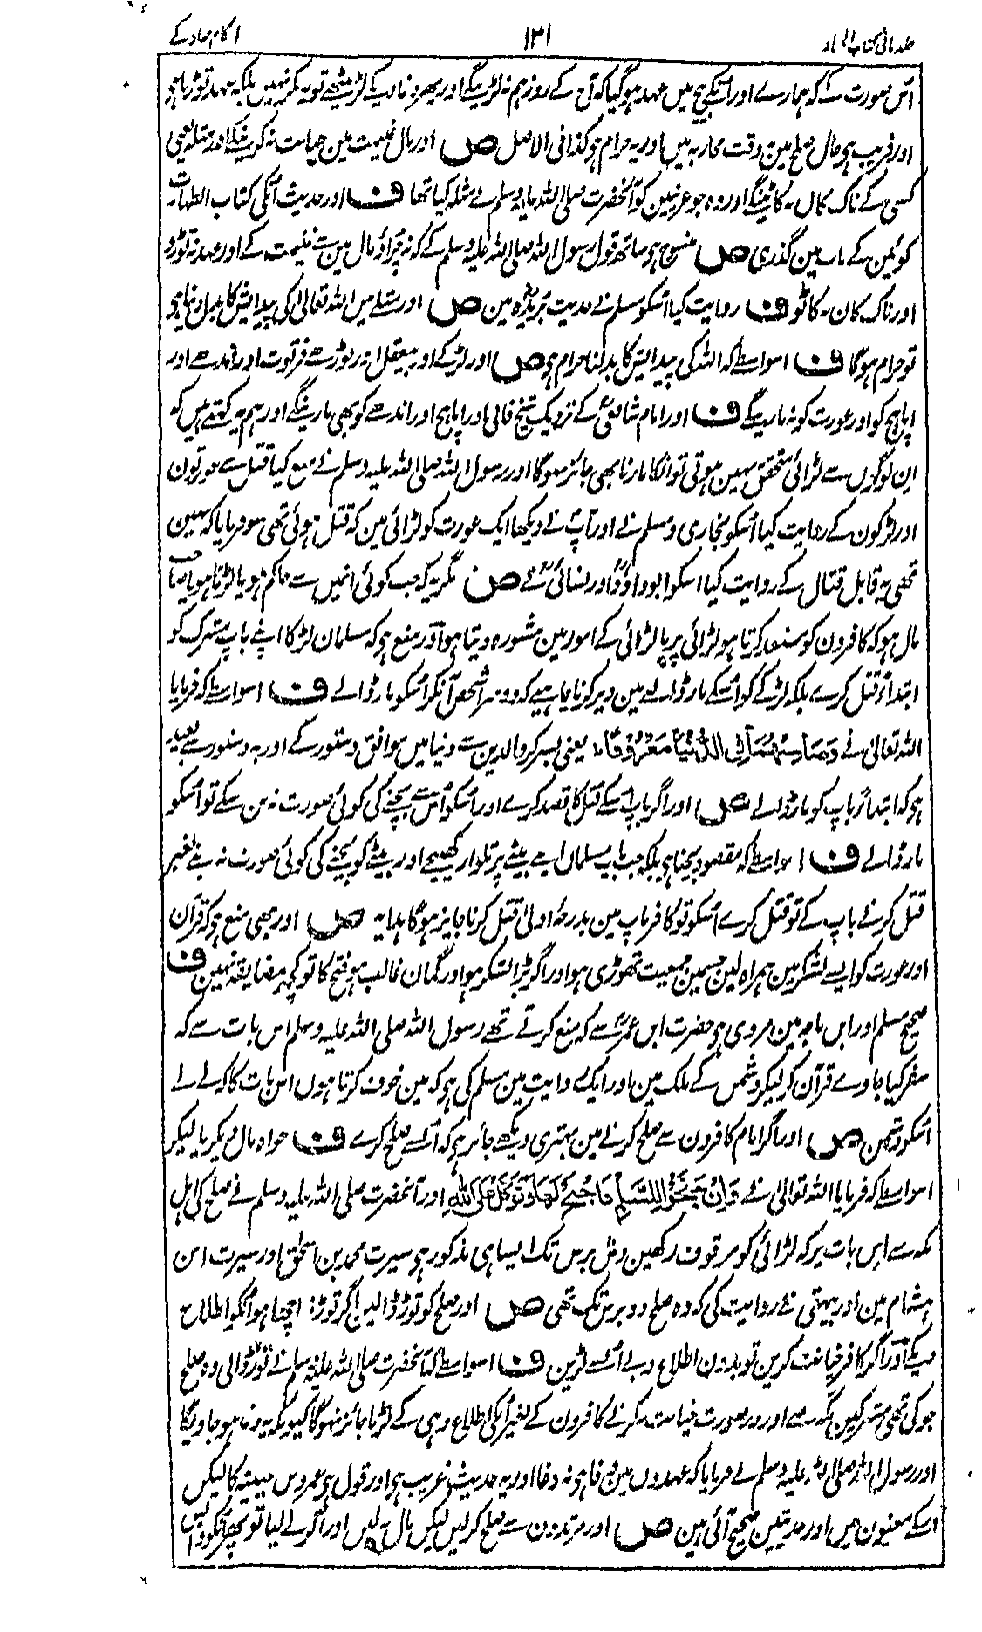 ۱۳۱
اس صورت سے کہ ہمارے اور انکے بیچ میں عہد ہوگیا کہ آج کے روز ہم نہ لڑینگے اور پھر دغا دیکے لڑ بیٹھے تو یہ مکر نہیں بلکہ عہد توڑنا ہی
اور فریب ہو حال صلح مین نہ وقت محاربہ میں اور یہ حرام ہو کذا فی الاصل ص اور مال غنیمت مین خیانت نہ کرینگے اور مثلہ یعنی
کسی کے ناک کان نہ کاٹینگے اور وہ جو عرنیین کو آنحضرت صلی اللہ علیہ وسلم نے مثلہ کیا تھا ف اور حدیث انکی کتاب الطہارت
کوئین کے باب مین گذری ص منسوخ ہو ساتھ قول رسول اللہ صلی اللہ علیہ وسلم کے کہ نہ چراؤ مال مین سے غنیمت کے اور عہد نہ توڑو
اور ناک کان نہ کاٹو ف روایت کیا اسکو مسلم نے حدیث بریدہ مین ص اور مثلے میں اللہ تعالی کی پیدایش کا بدلنا ہی
تو حرام ہوگا ف اسواسطے کہ اللہ کی پیدایش کا بدلنا حرام ہی ص اور لڑکے اور بیعقل اور بوڑھے فرتوت اور اندھے اور
اپاہج کو اور عورت کو نہ مارینگے ف اور امام شافعی کے نزدیک شیخ فانی اور اپاہج اور اندھے کو بھی مارینگے اور ہم یہ کہتے ہیں کہ
ان لوگوں سے لڑائی متحقق نہین ہوتی تو انکا مارنا بھی جائز نہوگا اور رسول اللہ صلی اللہ علیہ وسلم نے منع کیا قتل سے عورتون
اور لڑکون کے روایت کیا اسکو بخاری و مسلم نے اور آپ نے دیکھا ایک عورت کو لڑائی مین کہ قتل ہوئی تھی سو فرمایا کہ نہین
تھی یہ قابل قتال کے روایت کیا اسکو ابو داؤد اور نسائی نے ص مگر یہ کہ جب کوئی انمیں سے حاکم ہو یا لڑتا ہو یا صاحب
مال ہو کہ کافرون کو مستعد کرتا ہو لڑائی پر یا لڑائی کے امور مین مشورہ دیتا ہو اور منع ہی کہ مسلمان لڑکا اپنے باپ مشرک کو
ابتداءً قتل کرے بلکہ لڑکے کو اسکے مار ڈالنے مین دیر کرنا چاہیے کہ دوسرا شخص آنکر اسکو مار ڈالے ف اسواسطے کہ فرمایا
اللہ تعالی نے وَصَاحِبْهُمَا فِی الدُّنْيَا مَعْرُوْفًا یعنی بسر کر والدین سے دنیا میں موافق دستور کے اور یہ دستور سے بعید
ہو کہ ابتداءً باپ کو مار ڈالے ص اور اگر باپ اسکے قتل کا قصد کرے اور اسکو اس سے بچنے کی کوئی صورت نہ بن سکے تو اسکو
مار ڈالے ف اسواسطے کہ مقصود بچنا ہی بلکہ جب باپ مسلمان اپنے بیٹے پر تلوار کھینچے اور بیٹے کو بچنے کی کوئی صورت نہ بنے بغیر
قتل کرنے باپ کے تو قتل کرے اسکو تو کافر باپ مین بدرجۂ اولی قتل کرنا جایز ہوگا ہدایہ ص اور بھی منع ہی کہ قرآن
اور عورت کو ایسے لشکر مین ہمراہ لین جسمین جمعیت تھوڑی ہو اور اگر بڑا لشکر ہو اور گمان غالب ہو فتح کا تو کچھ مضایقہ نہین ف
صحیح مسلم اور ابن ماجہ مین مروی ہی حضرت ابن عمر سے کہ منع کرتے تھے رسول اللہ صلی اللہ علیہ وسلم اس بات سے کہ
سفر کیا جاوے قرآن کو لیکر دشمن کے ملک مین اور ایک روایت مین مسلم کی ہو کہ مین خوف کرتا ہوں اس بات کا کہ لے لے
اسکو دشمن ص اور اگر امام کافرون سے صلح کرنے مین بہتری دیکھے جائز ہی کہ انسے صلح کرے ف خواہ مال دیکر یا لیکر
اسواسطے کہ فرمایا اللہ تعالی نے وَاِنْ جَنَحُوْا لِلسَّلْمِ فَاجْنَحْ لَهَا وَتَوَكَّلْ عَلَى اللّٰهِ اور آنحضرت صلی اللہ علیہ وسلم نے صلح کی اہل
مکہ سے اس بات پر کہ لڑائی کو موقوف رکھین دس برس تک ایسا ہی مذکور ہی سیرت محمد بن اسحٰق اور سیرت ابن
ہشام مین اور بیہقی نے روایت کی کہ وہ صلح دو برس تک تھی ص اور صلح کو توڑ ڈالین اگر توڑنا اچھا ہو انکو اطلاع
دیکے اور اگر کافر خیانت کرین تو بدون اطلاع دیے انسے لڑین ف اسواسطے کہ آنحضرت صلی اللہ علیہ وسلم نے توڑ ڈالی وہ صلح
جو کی تھی مشرکین مکہ سے اور در صورت خیانت نہ کرنے کافرون کے بغیر انکی اطلاع دہی کے لڑنا جائز نہوگا کیونکہ یہ دغا ہو جاویگا
اور رسول اللہ صلی اللہ علیہ وسلم نے فرمایا کہ عہدوں مین وفا ہی نہ دغا اور یہ حدیث غریب ہو اور قول ہی عمرو بن عبسہ کا لیکن
اسکے معنون میں اور حدیثین صحیح آئی ہین ص اور مرتدون سے صلح کر لیں لیکن مال نہ لیں اور اگر لے لیا تو پھر